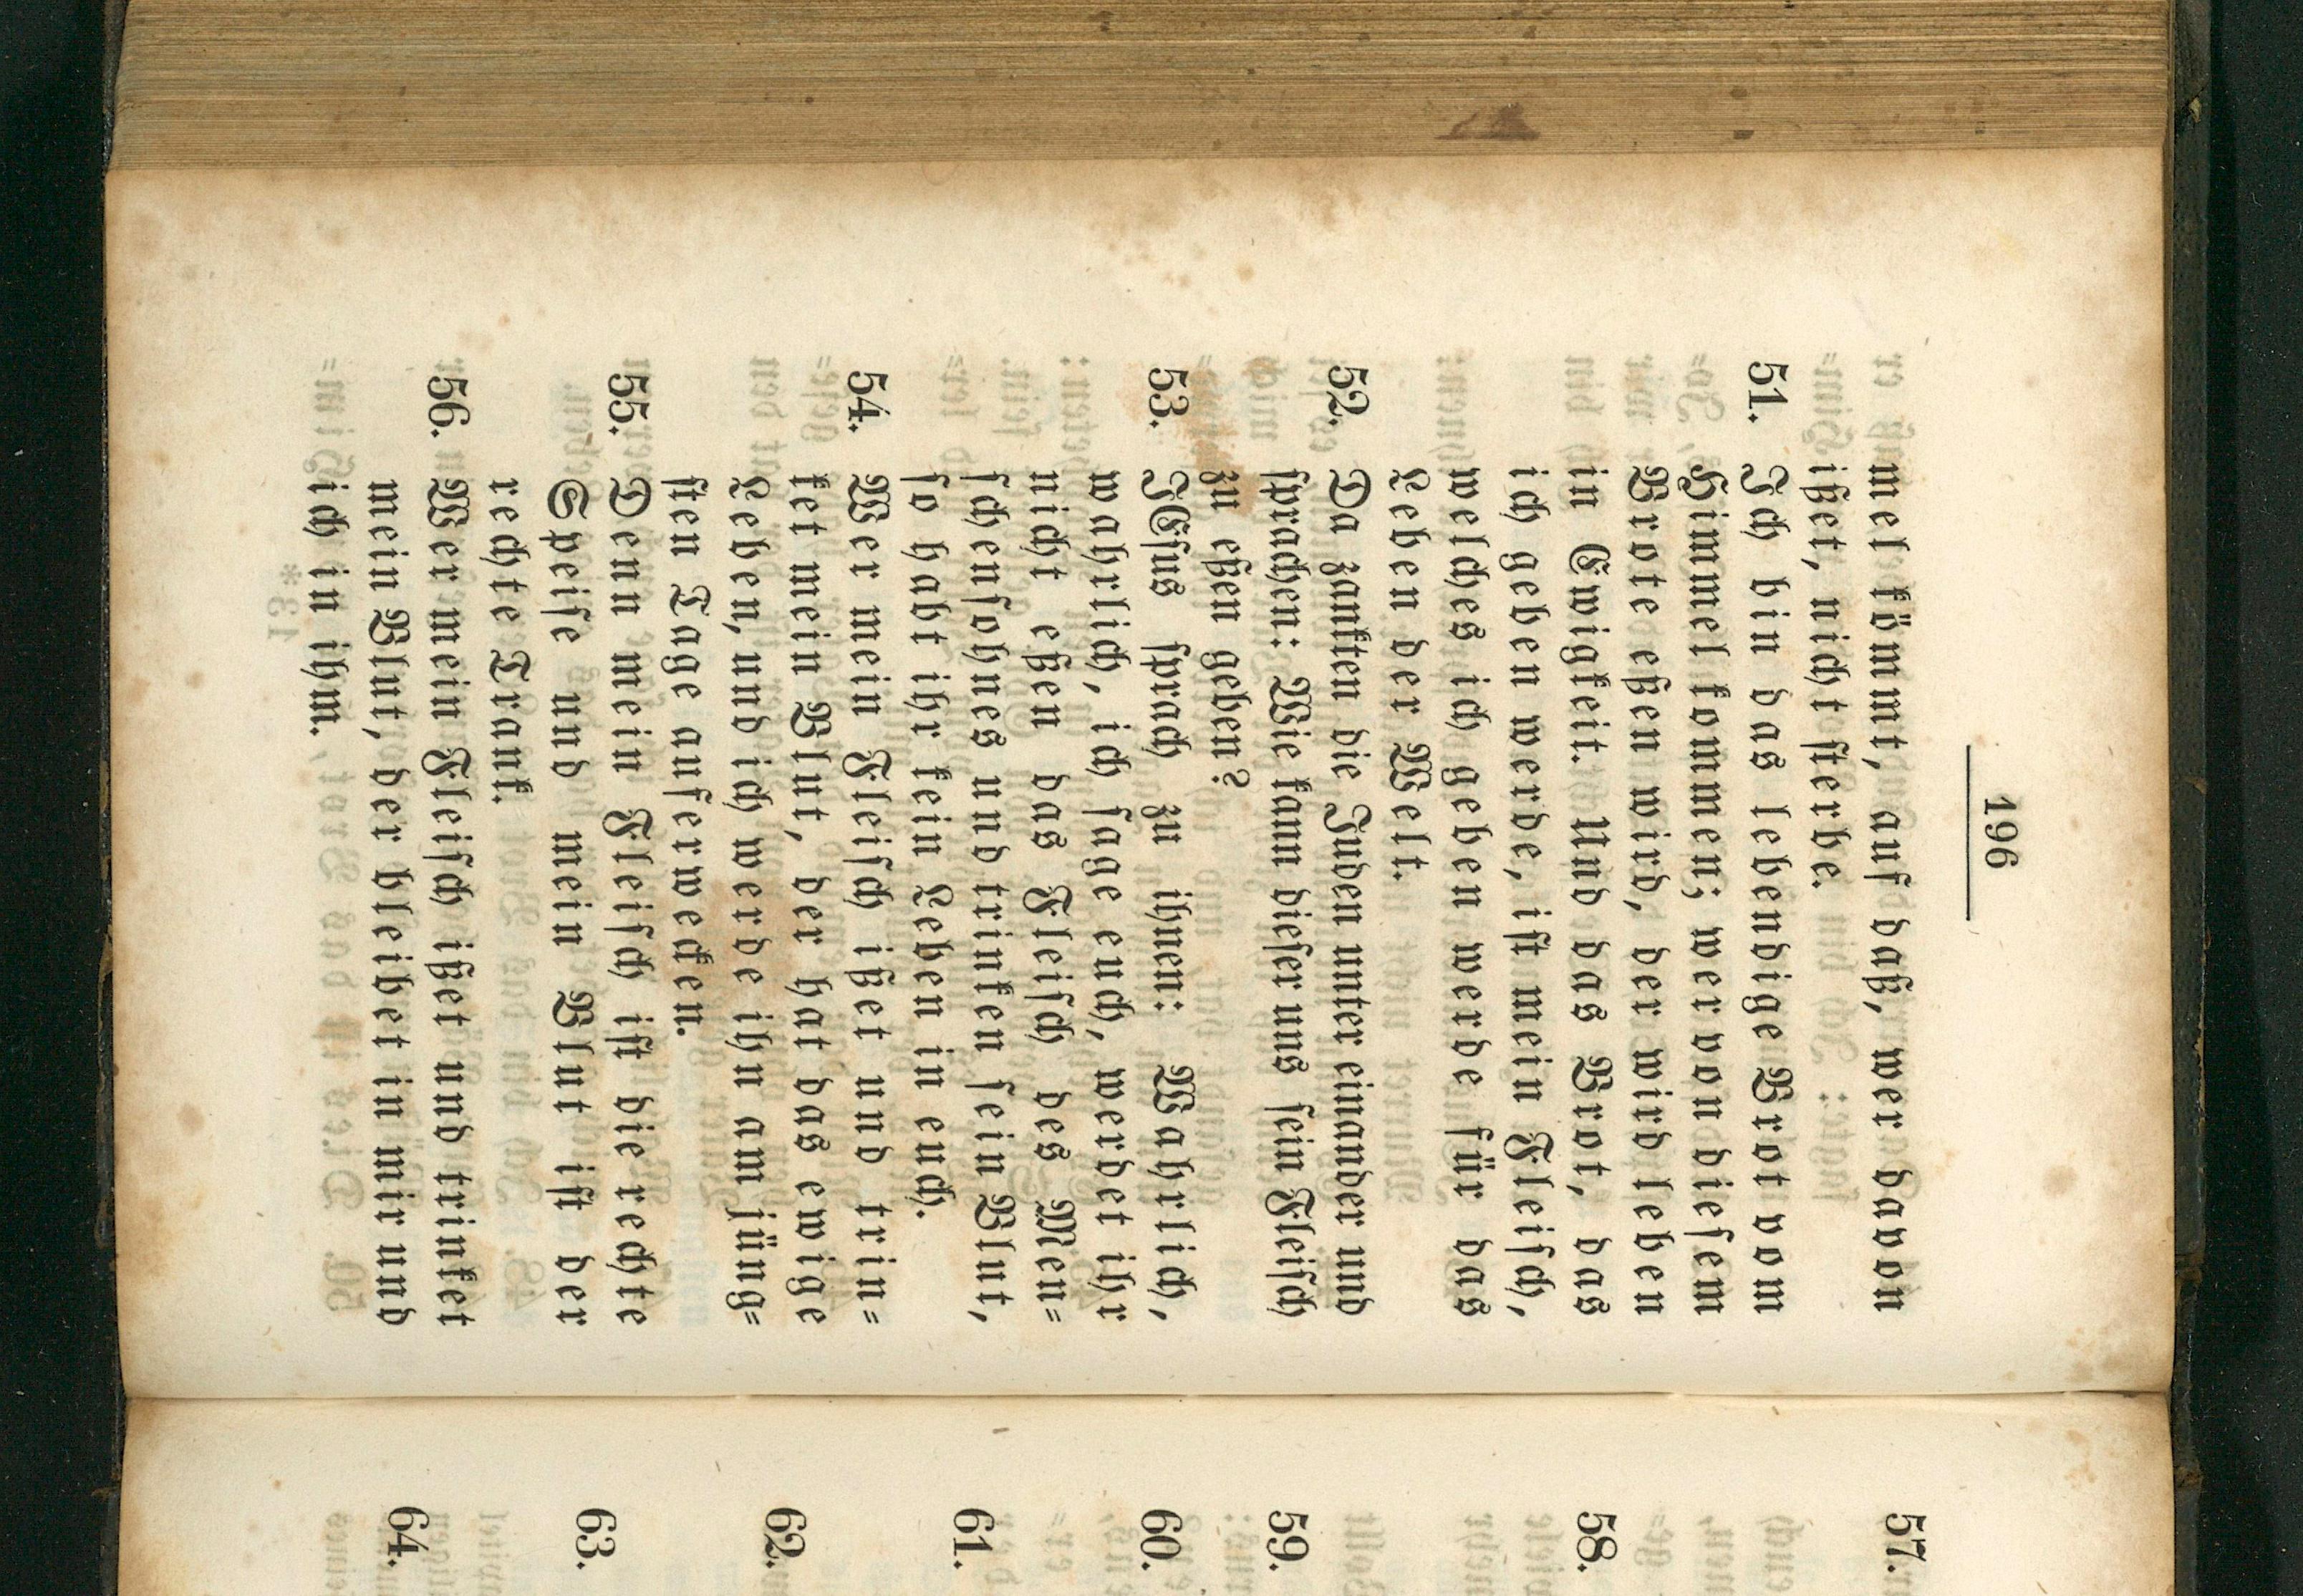 196
mel kömmt, auf daß, wer davon
ißet, nicht sterbe.
51. Ich bin das lebendige Brot vom
Himmel kommen; wer von diesem
Brote eßen wird, der wird leben
in Ewigkeit. Und das Brot, das
ich geben werde, ist mein Fleisch,
welches ich geben werde für das
Leben der Welt.
52. Da zankten die Juden unter einander und
sprachen: Wie kann dieser uns sein Fleisch
zu eßen geben?
53. JEsus sprach zu ihnen: Wahrlich,
wahrlich, ich sage euch, werdet ihr
nicht eßen das Fleisch des Men=
schensohnes und trinken sein Blut,
so habt ihr kein Leben in euch.
54. Wer mein Fleisch ißet und trin=
ket mein Blut, der hat das ewige
Leben, und ich werde ihn am jüng=
sten Tage auferwecken.
55. Denn mein Fleisch ist die rechte
Speise und mein Blut ist der
rechte Trank.
56. Wer mein Fleisch ißet und trinket
mein Blut, der bleibet in mir und
ich in ihm.
57.
58.
59.
60.
61.
62.
63.
64.